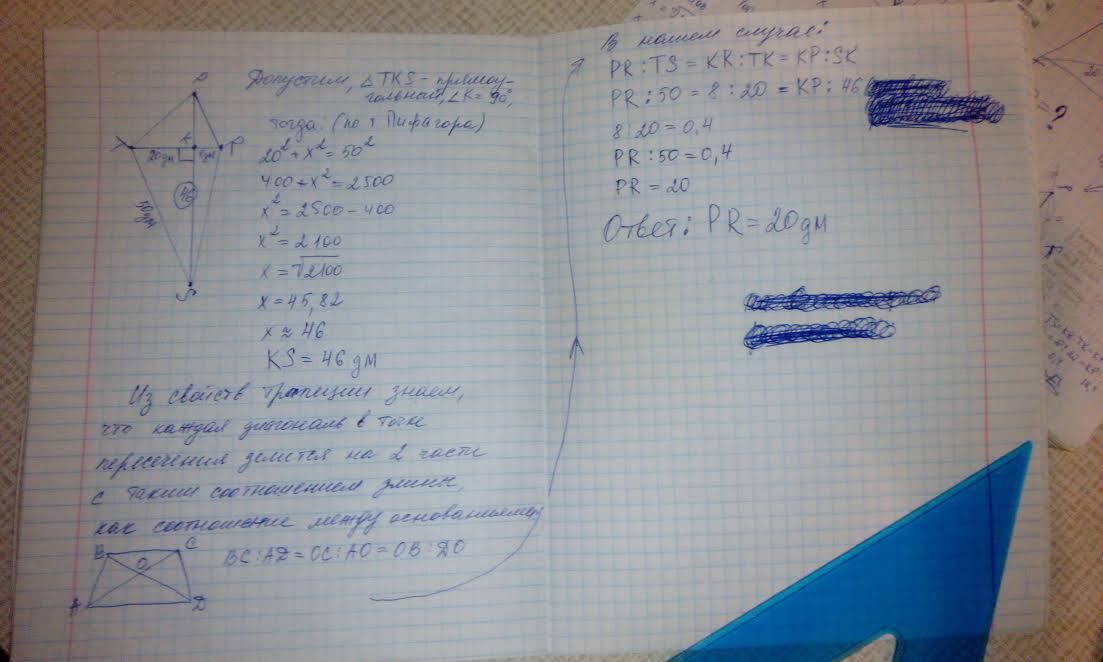 Допустим, △TKS - прямоу-
гольный, ∠K = 90°,
тогда (по т Пифагора)
20² + x² = 50²
400 + x² = 2500
x² = 2500 - 400
x² = 2100
x = √2100
x = 45,82
x ≈ 46
KS = 46 дм
P
K
20дм
дм
P
46
50дм
S
Из свойств трапеции знаем,
что каждая диагональ в точке
пересечения делится на 2 части
с таким соотношением длины,
как соотношение между основаниями
B
C
O
A
D
BC : AD = OC : AO = OB : DO
В нашем случае:
PR : TS = KR : TK = KP : SK
PR : 50 = 8 : 20 = KP : 46
8 : 20 = 0,4
PR : 50 = 0,4
PR = 20
Ответ: PR = 20 дм
?
20